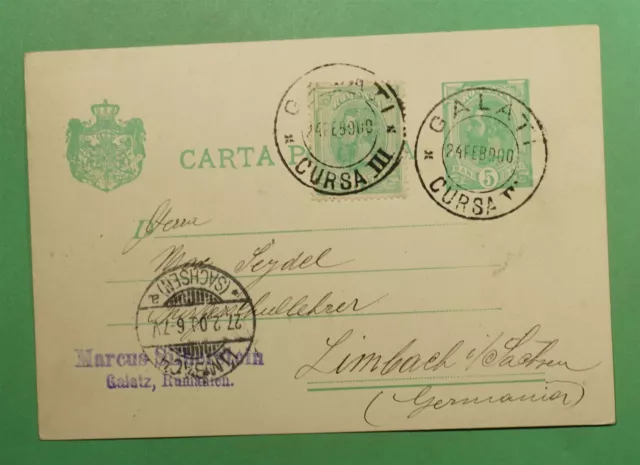 GALATI
24FEB900
CURSA III
GALATI
24FEB900
CURSA
5
CARTA P A
D
Herrn
Max Seydel
lehrer
Limbach i/Sachsen
(Germania)
*(SACHSEN)
a
27.2.00.6-7.V.
Marcus
Galatz, Rumänien.